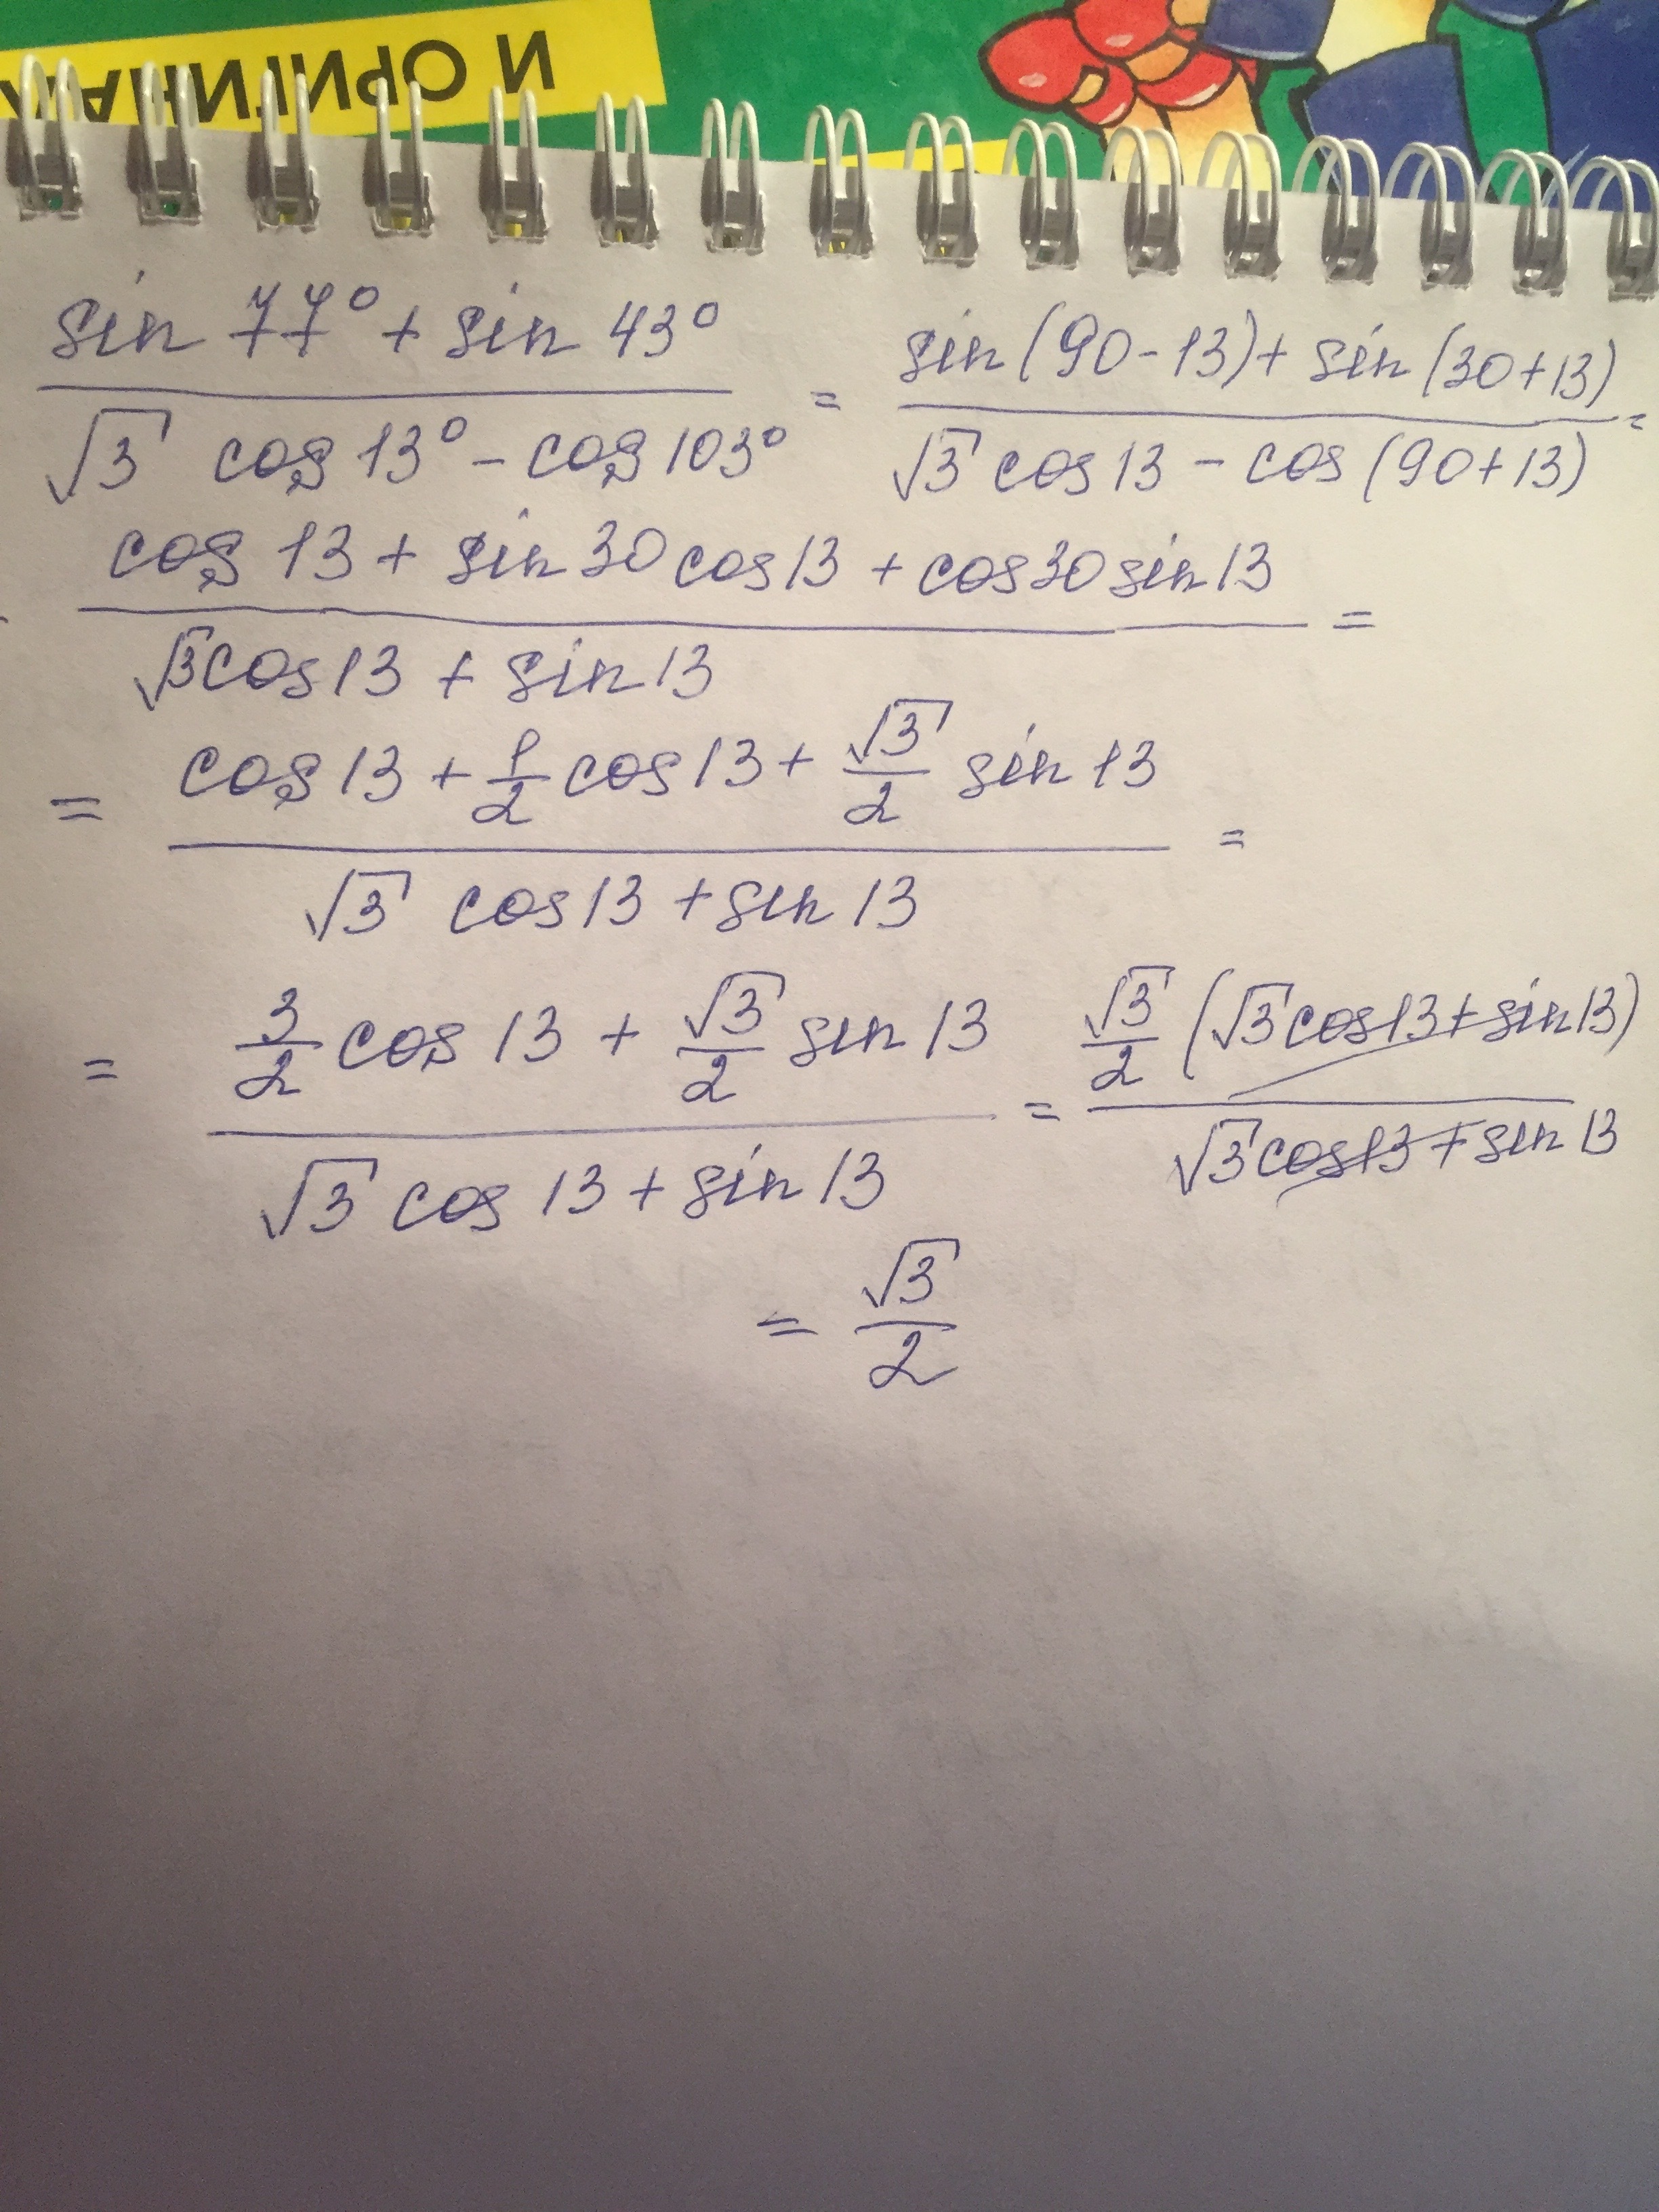 И ОРИГИНАЛ
sin 77° + sin 43° / √3 cos 13° - cos 103° = sin (90 - 13) + sin (30 + 13) / √3 cos 13 - cos (90 + 13) =
cos 13 + sin 30 cos 13 + cos 30 sin 13 / √3 cos 13 + sin 13 =
= cos 13 + 1/2 cos 13 + √3/2 sin 13 / √3 cos 13 + sin 13 =
= 3/2 cos 13 + √3/2 sin 13 / √3 cos 13 + sin 13 = √3/2 (√3 cos 13 + sin 13) / √3 cos 13 + sin 13
= √3/2